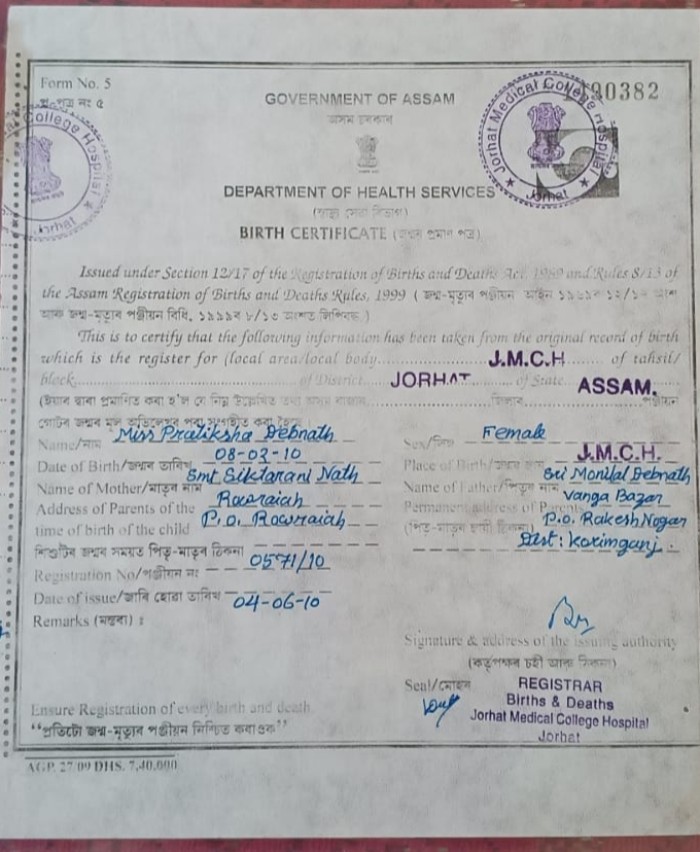 Form No. 5
প্ৰ-পত্ৰ নং ৫
90382
GOVERNMENT OF ASSAM
অসম চৰকাৰ
Jorhat Medical College Hospital
Jorhat
College Hospital
Jorhat
DEPARTMENT OF HEALTH SERVICES
(স্বাস্থ্য সেৱা বিভাগ)
BIRTH CERTIFICATE (জন্মৰ প্ৰমাণ পত্ৰ)
Issued under Section 12/17 of the Registration of Births and Deaths Act, 1969 and Rules 8/13 of
the Assam Registration of Births and Deaths Rules, 1999 ( জন্ম-মৃত্যুৰ পঞ্জীয়ন আইন ১৯৬৯ৰ ১২/১৭ অংশ
আৰু জন্ম-মৃত্যুৰ পঞ্জীয়ন বিধি, ১৯৯৯ৰ ৮/১৩ অংশত লিপিবদ্ধ )
This is to certify that the following information has been taken from the original record of birth
which is the register for (local area/local body J.M.C.H of tahsil/
block of District JORHAT of State ASSAM.
(ইয়াৰ দ্বাৰা প্ৰমাণিত কৰা হ'ল যে নিম্ন উল্লেখিত তথ্য অসম ৰাজ্যৰ জিলাৰ পঞ্জীয়ন
গোটৰ জন্মৰ মূল অভিলেখৰ পৰা সংগৃহীত কৰা হৈছে
Name/নাম Miss Pratiksha Debnath Sex/লিংগ Female
Date of Birth/জন্মৰ তাৰিখ 08-02-10 Place of Birth/জন্মৰ স্থান J.M.C.H.
Name of Mother/মাতৃৰ নাম Smt Siktarani Nath Name of Father/পিতৃৰ নাম Sri Monilal Debnath
Address of Parents of the Rowraiah Permanent address of Parents Vanga Bazar
time of birth of the child P.O. Rowraiah (পিতৃ-মাতৃৰ স্থায়ী ঠিকনা) P.O. Rakesh Nagar
শিশুটিৰ জন্মৰ সময়ত পিতৃ-মাতৃৰ ঠিকনা Dist: Karimganj.
Registration No/পঞ্জীয়ন নং 0571/10
Date of issue/জাৰি হোৱা তাৰিখ 04-06-10
Remarks (মন্তব্য) :
Signature & address of the issuing authority
(কৰ্তৃপক্ষৰ চহী আৰু ঠিকনা)
Seal/মোহৰ REGISTRAR
Births & Deaths
Jorhat Medical College Hospital
Jorhat
Ensure Registration of every birth and death
"প্ৰতিটো জন্ম-মৃত্যুৰ পঞ্জীয়ন নিশ্চিত কৰাওক"
AGP. 27/09 DHS. 7,40,000